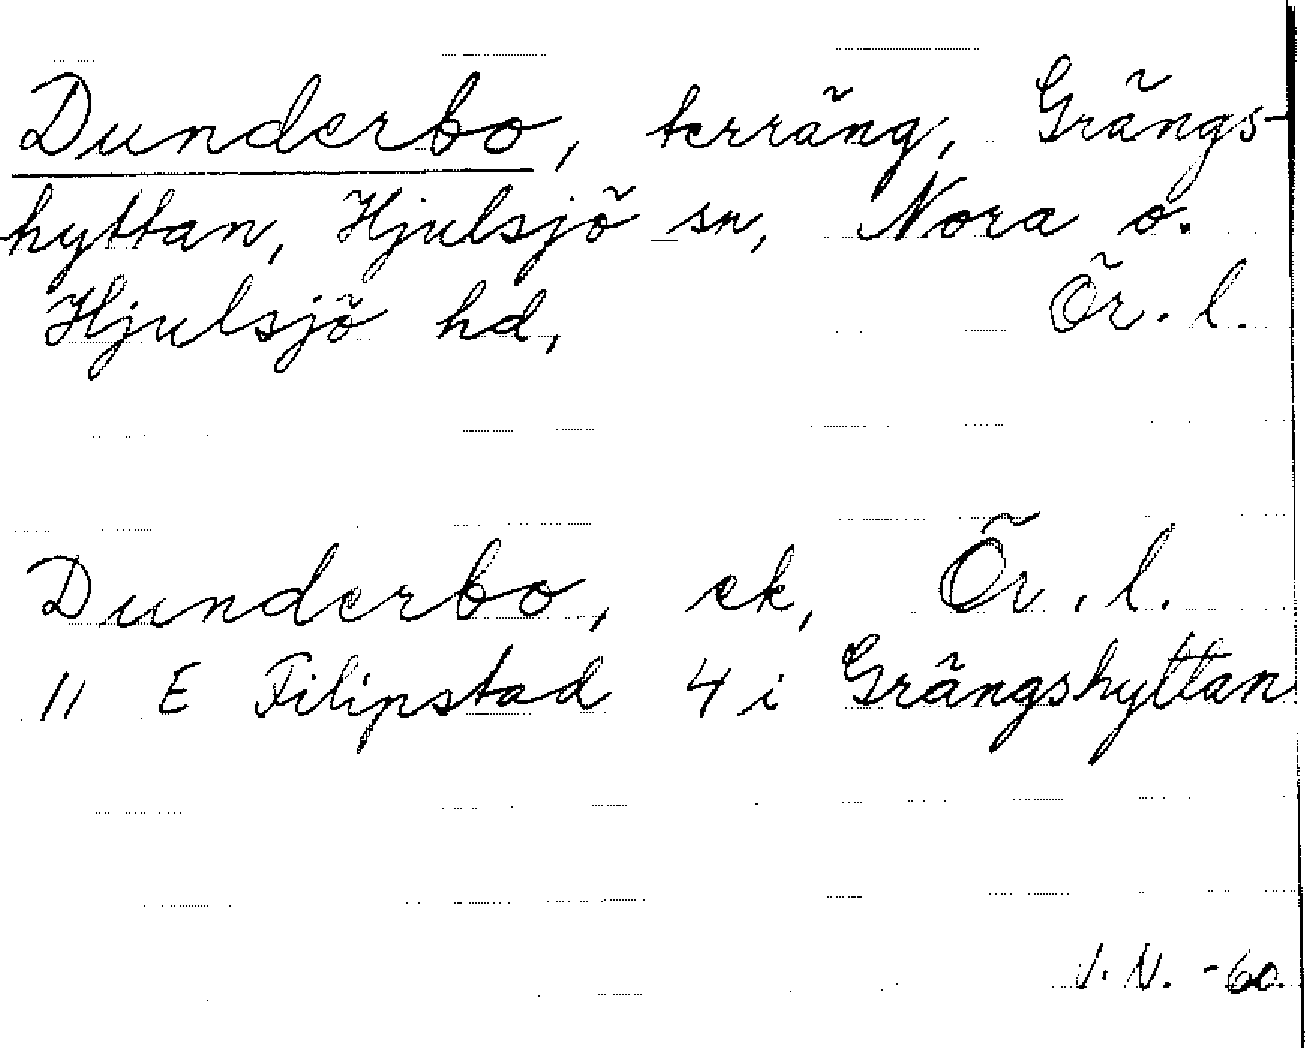 Dunderbo, terräng, Grängs-
hyttan, Hjulsjö sn, Nora o.
Hjulsjö hd, Ör. l.
Dunderbo, ek, Ör. l.
11 E Filipstad 4 i Grängshyttan
J. N. -60.